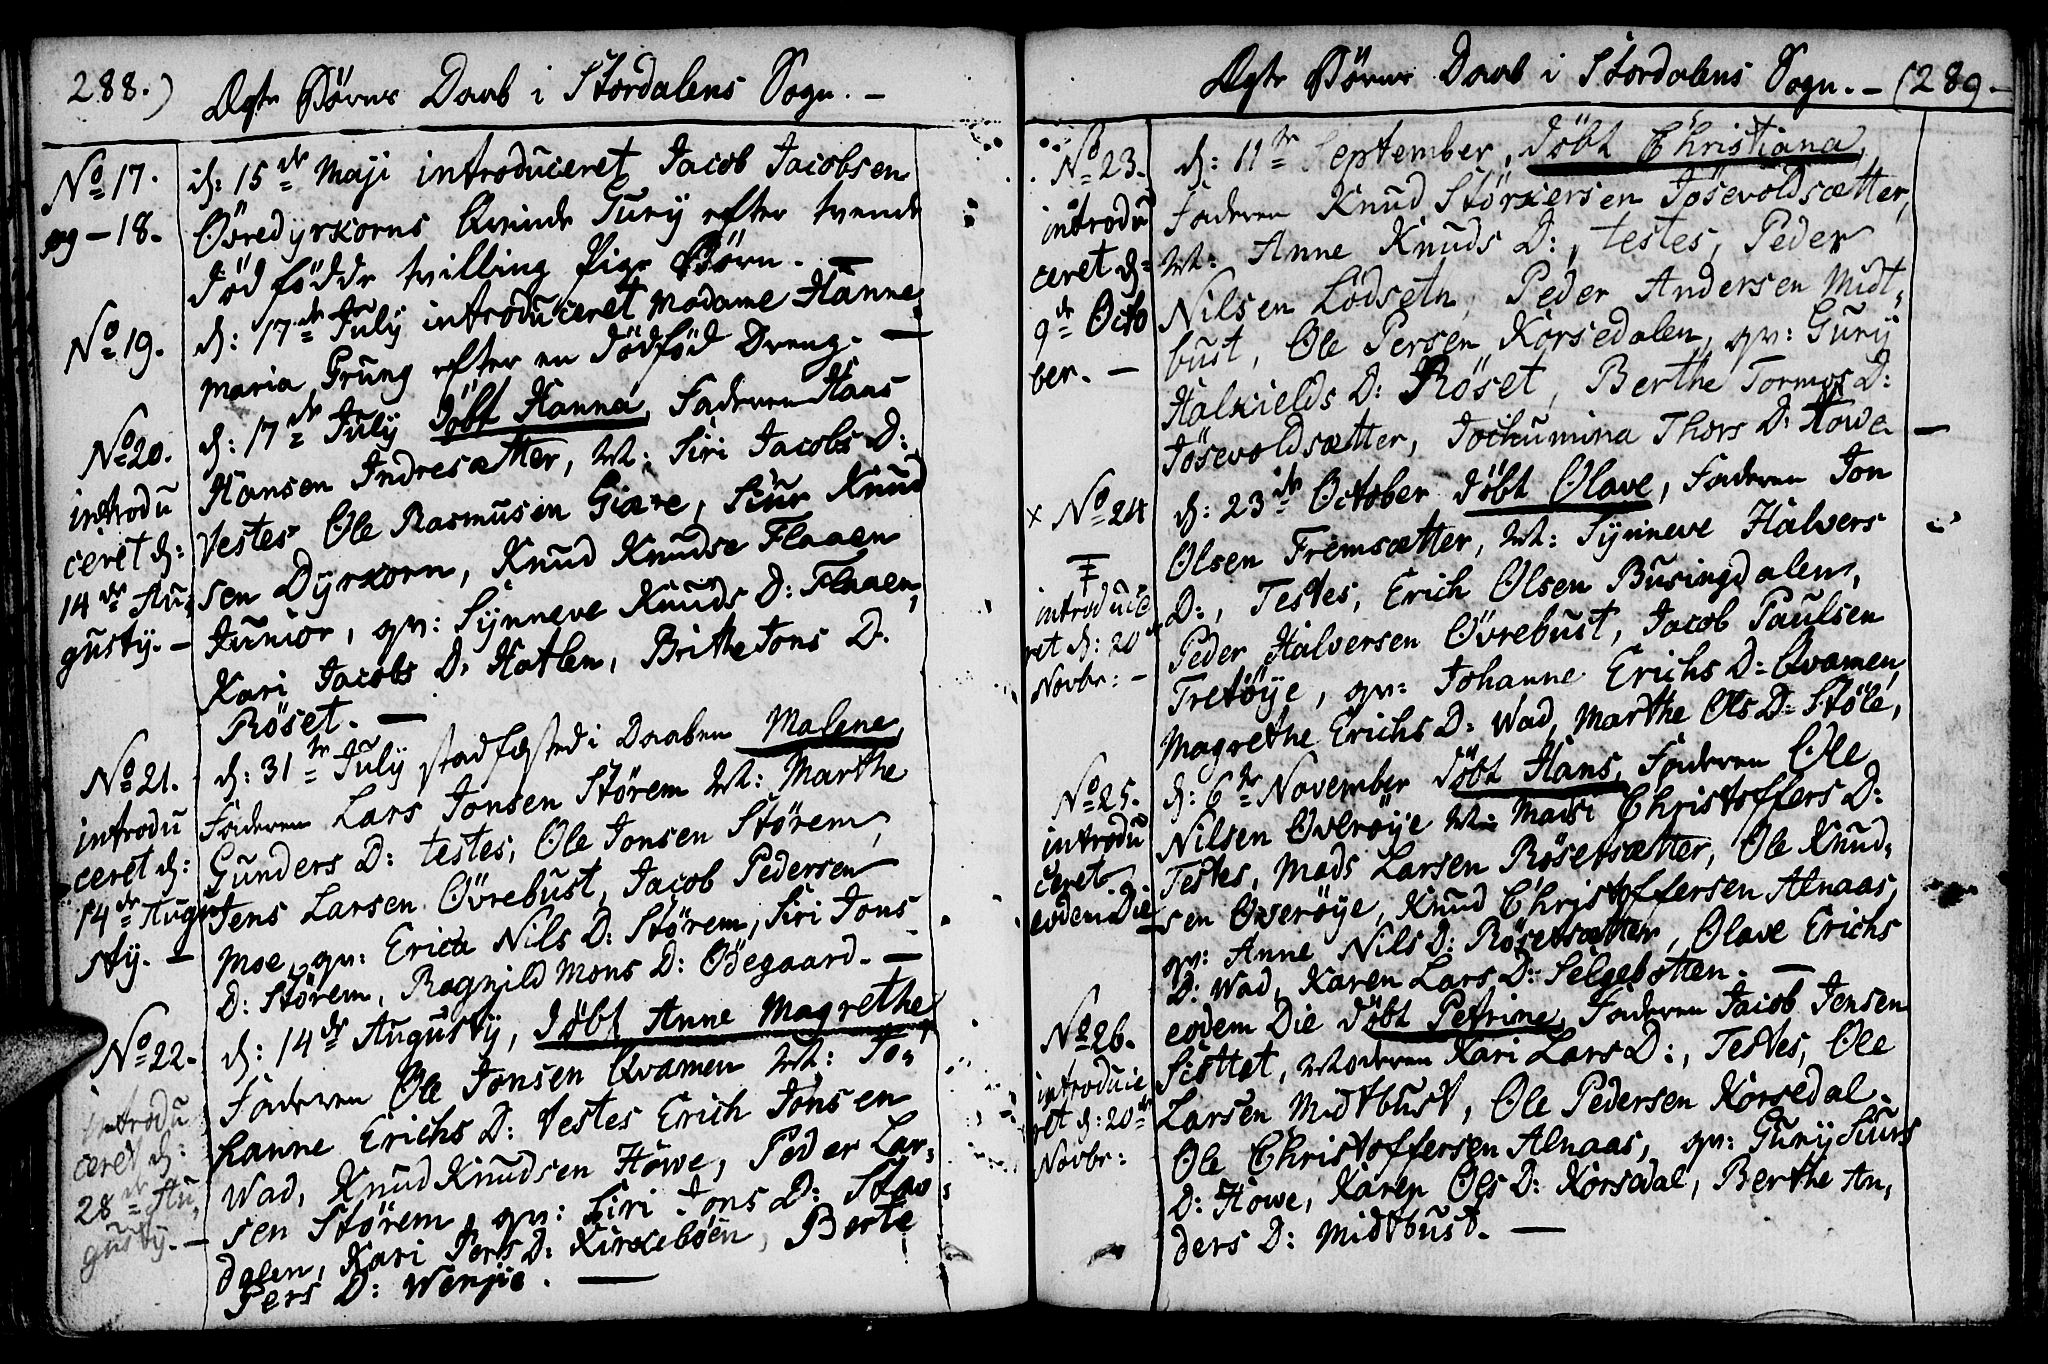 288.) Ægte Børns Daab i Stordalens Sogn. -
No 17.
og - 18.
d: 15de Maji introduceret Jacob Jacobsen
Øvredyrkorns Qvinde Gury efter tvende
død fødde tvilling Pige Børn. -
No 19.
d: 17de July introduceret Madame Hanne
Maria Grung efter en dødfød Dreng. -
No 20.
introdu
ceret d:
14de Au,
gusty. -
d: 17de July døbt Hanna, Faderen Hans
Hansen Indresætter, M: Siri Jacobs D:
Testes Ole Rasmusen Giære, Siur Knud
sen Dyrkorn, Knud Knudse Flaaen
Junior, qv: Synneve Knuds D: Flaaen,
Kari Jacobs D: Hatlen, Brithe Jons D.
Røset. -
No 21.
introdu
ceret d:
14de Augu
sty. -
d: 31te July stadfæsted i Daaben Malene,
Faderen Lars Jonsen Størem M: Marthe
Gunders D: testes, Ole Jonsen Størem,
Jens Larsen Øvrebust, Jacob Pedersen
Moe, qv: Erica Nils D: Størem, Siri Jons
D: Størem, Ragnild Mons D: Ødegaard. -
No 22.
introdu
ceret d:
28de Au,
gusty. -
d: 14de Augusty, døbt Anne Magrethe
Faderen Ole Jonsen Qvamen M: Jo,
hanne Erichs D: Testes Erich Jonsen
Wad, Knud Knudsen Howe, Peder Lar,
sen Størem, qv: Siri Jons D: Stav
dalen, Kari Pers D: Kirkebøen, Berte
Pers D: . -
Ægte Børns Daab i Stordalens Sogn. - (289. -
No 23.
introdu
ceret d:
9de Octo
ber. -
d: 11te September, døbt Christiana,
Faderen Knud Størkersen Jøsevoldsætter,
M: Anne Knuds D:, testes, Peder
Nilsen Lødseth, Peder Andersen Midt,
bust, Ole Persen Korsedalen, qv: Gury
Halkields D: Røset, Berthe Tormos D:
Jøsevoldsætter, Jochumina Thors D: Howe -
x No 24
introduce
ret d: 20
Novbr: -
d: 23de October døbt Olave, Faderen Jon
Olsen Fremsætter, M: Synneve Halvers
D:, Testes, Erich Olsen Busingdalen,
Peder Halversen Øvrebust, Jacob Paulsen
Tretøye, qv: Johanne Erichs D: Qvamen,
Magrethe Erichs D: Wad, Marthe Ols D: Støle,
No 25.
introdu
ceret
eodem Die
d: 6te November døbt Hans, Faderen Ole
Nilsen Overøye M: Madsi Christoffers D:
Testes, Mads Larsen Røsetsætter, Ole Knud,
sen Overøye, Knud Christoffersen Alnaas,
qv: Anne Nils D: Røsetsætter, Olave Erichs
D: Wad, Karen Lars D: Selgebotten. -
No 26.
introduce
ret d: 20de
Novbr:
eodem Die døbt Petrine, Faderen Jacob Jensen
Listtøt, Moderen Kari Lars D:, Testes, Ole
Larsen Midtbust, Ole Pedersen Korsedal.
Ole Christoffersen Alnaas, qv: Gury Siurs
D: Howe, Karen Ols D: Korsdal, Berthe An,
ders D: Midtbust. -